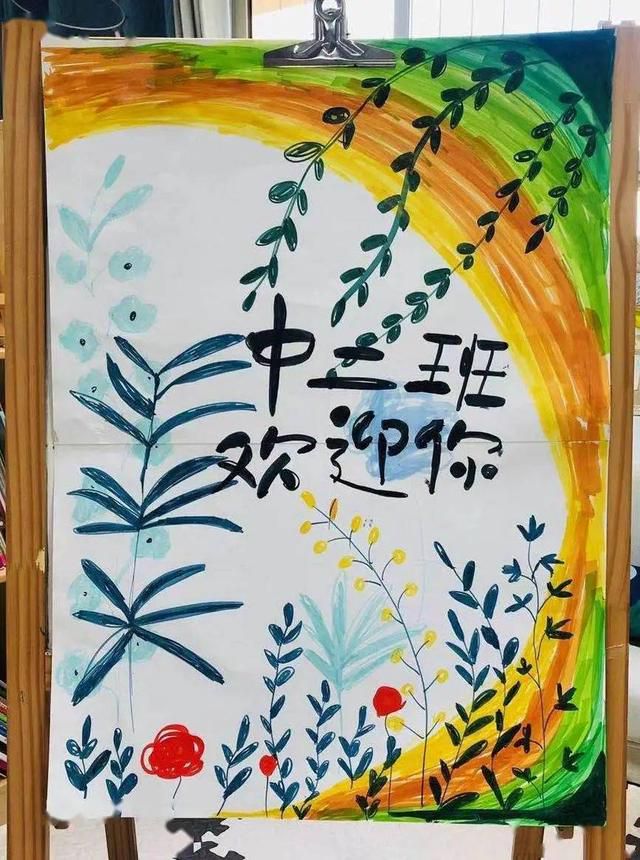 中二班
欢迎你